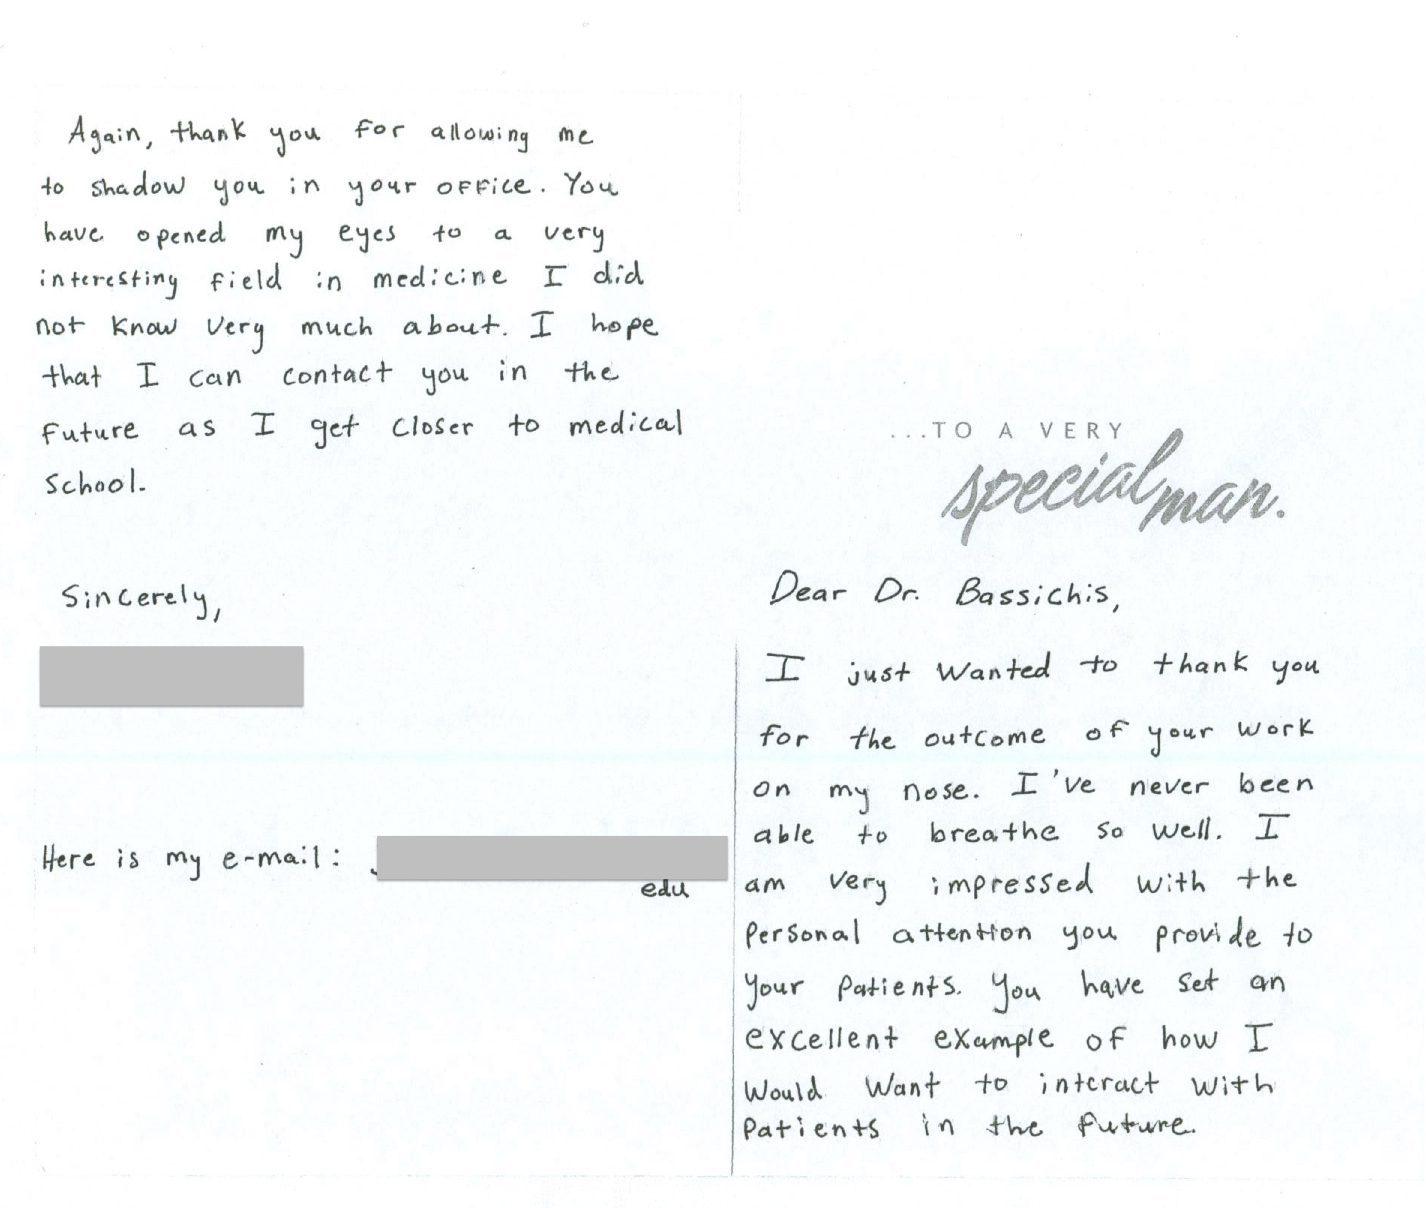 ...TO A VERY
special man.
Dear Dr. Bassichis,
I just wanted to thank you
for the outcome of your work
on my nose. I've never been
able to breathe so well. I
am very impressed with the
personal attention you provide to
your patients. You have set an
excellent example of how I
would want to interact with
patients in the future.
Again, thank you for allowing me
to shadow you in your office. You
have opened my eyes to a very
interesting field in medicine I did
not know very much about. I hope
that I can contact you in the
future as I get closer to medical
school.
Sincerely,
Here is my e-mail:
edu